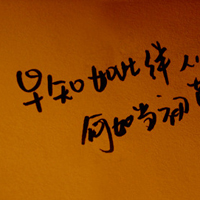 早知如此绊人
何如当初